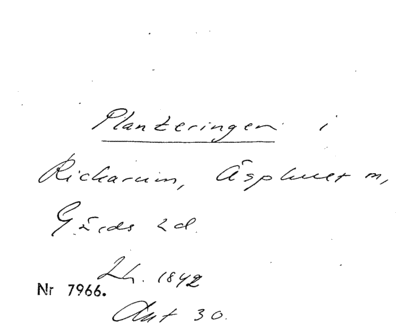 Planteringen i
Rickarum, Äsphult m,
Gärds hd.
Lh. 1842
Nr 7966.
Akt 30.